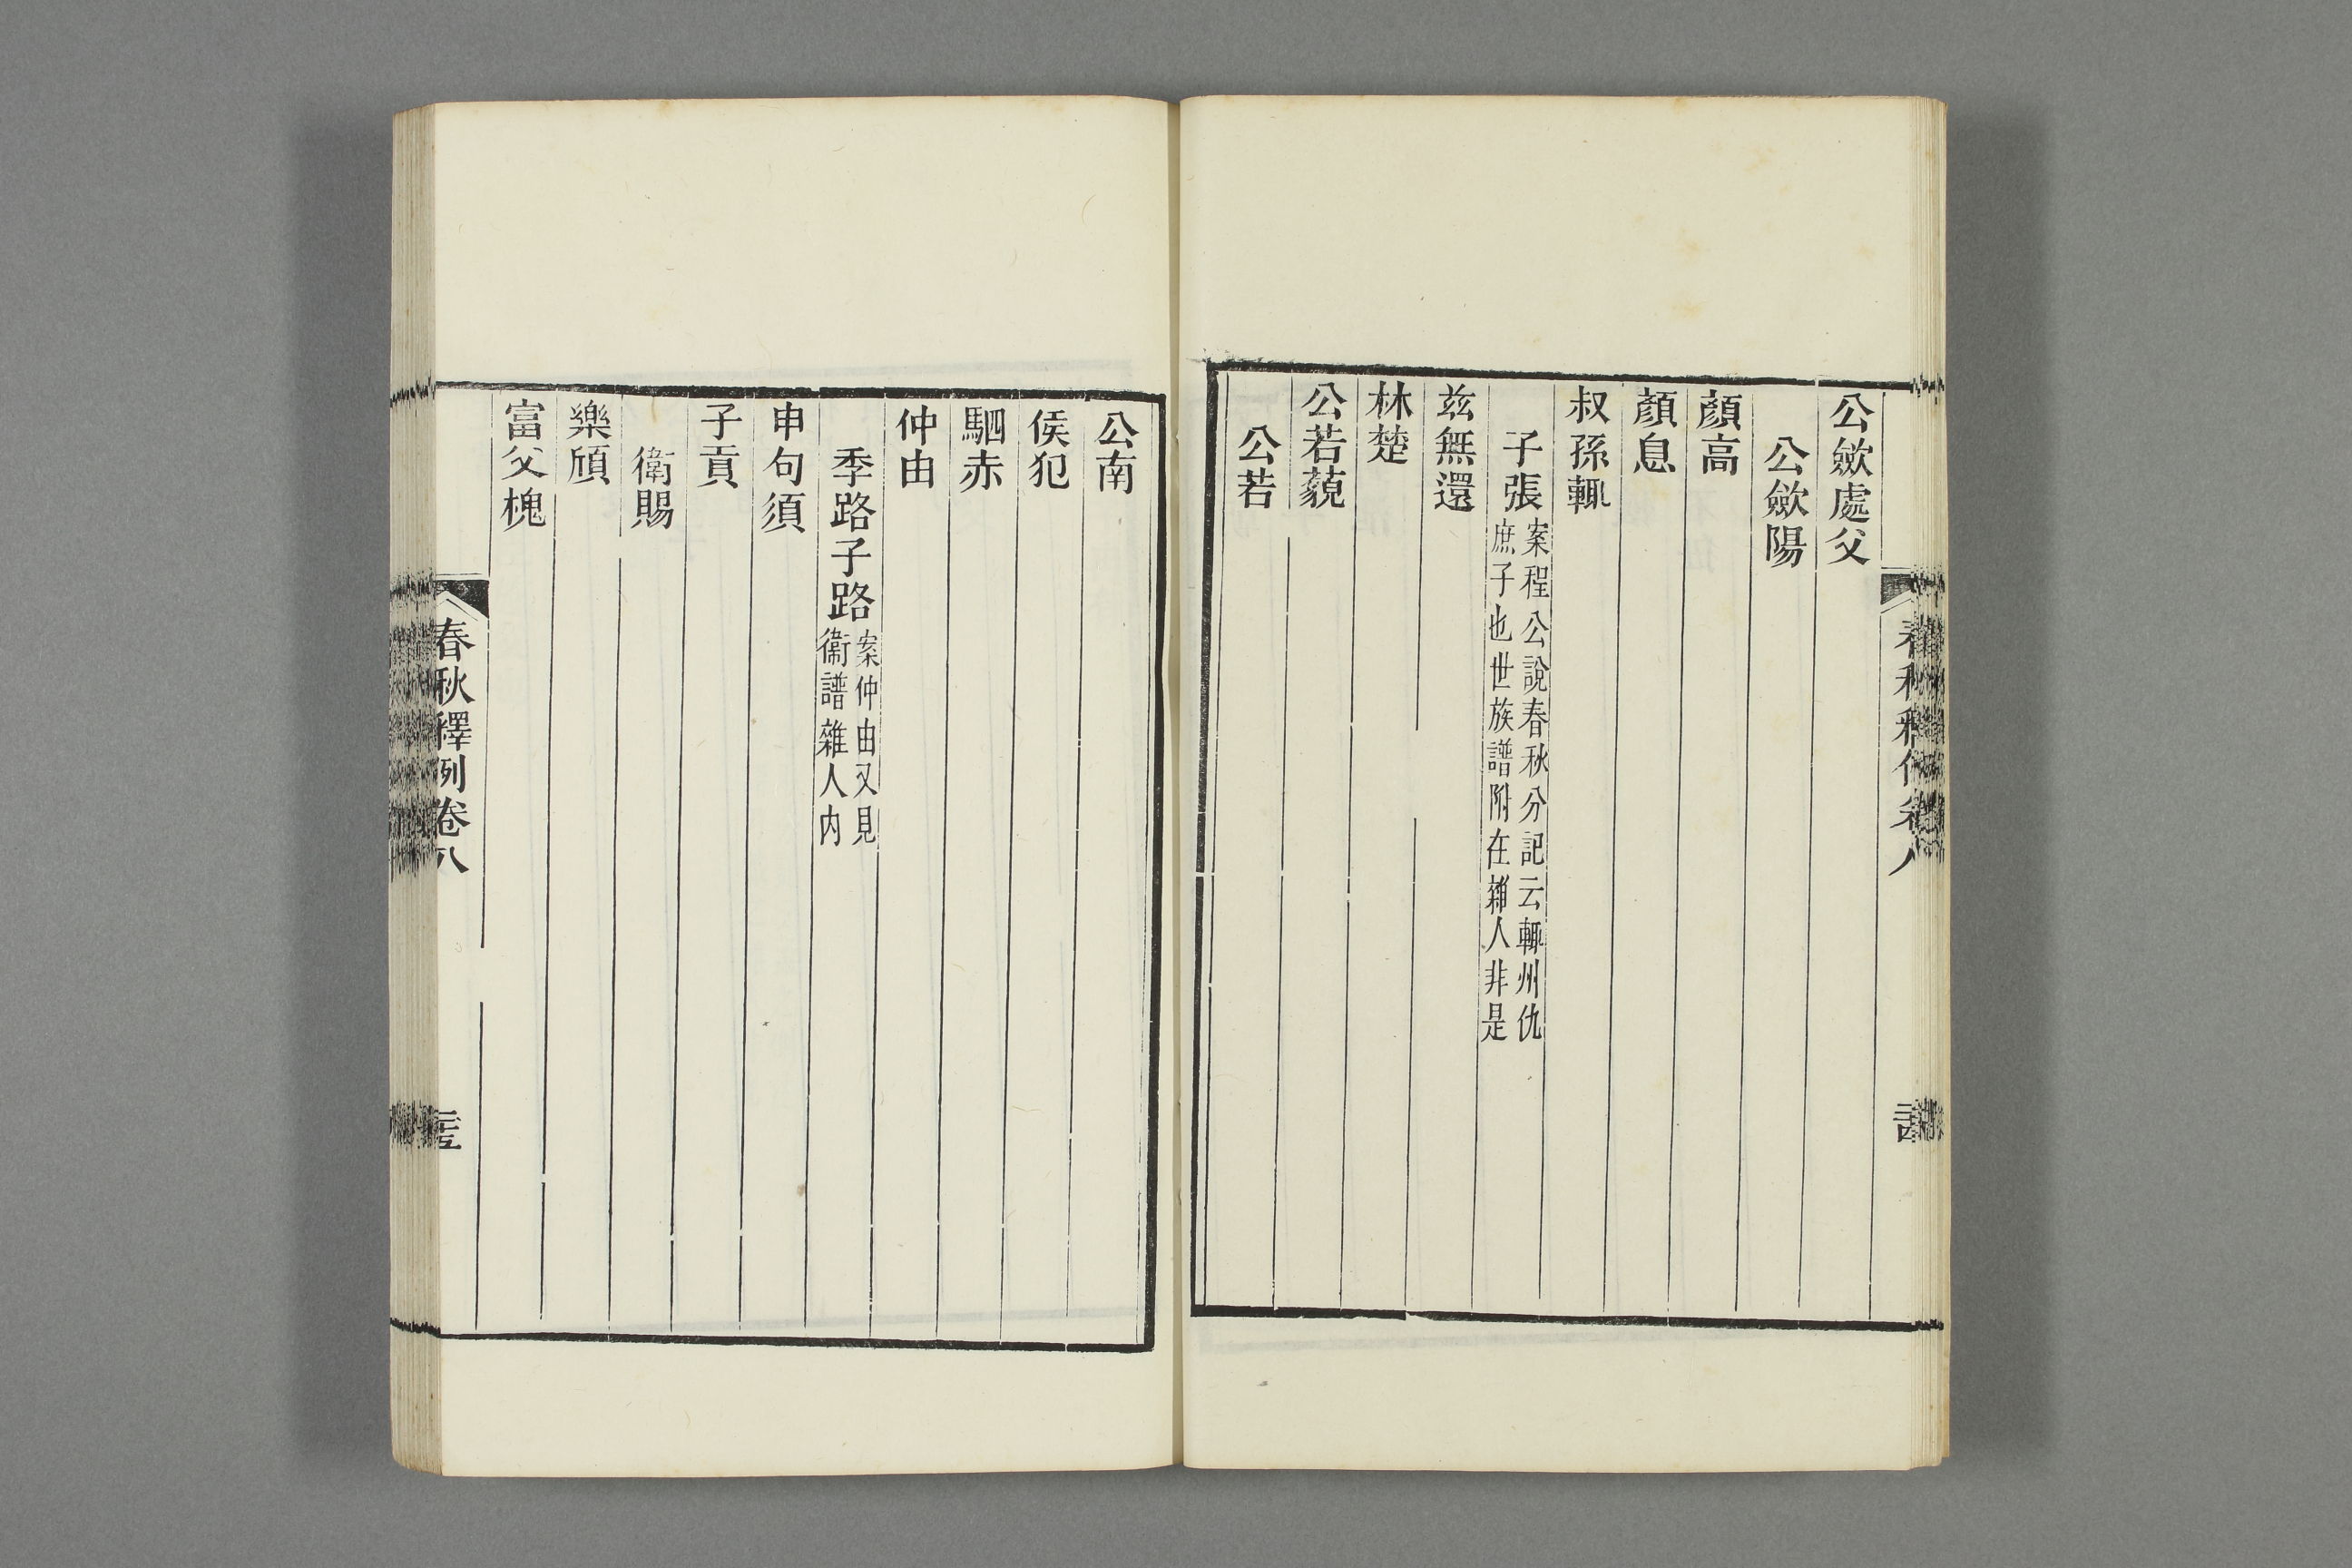 公歛處父
公歛陽
顏高
顏息
叔孫輒
子張案程公說春秋分記云輒州仇
庶子也世族譜附在雜人非是
兹無還
林楚
公若藐
公若
公南
侯犯
駟赤
仲由
季路子路案仲由又見
衞譜雜人内
申句須
子貢
衛賜
樂頎
富父槐
春秋釋例卷八